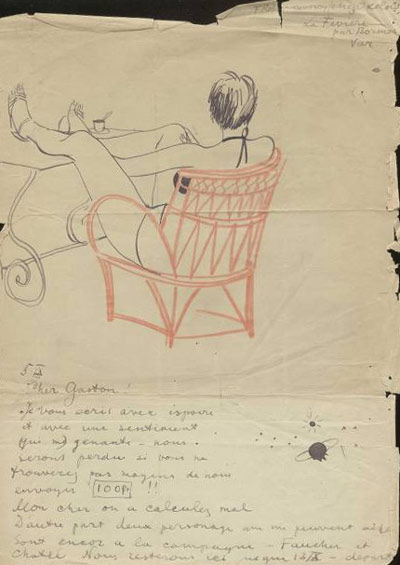 La Favière
par Bormes
Var
5 IX
Cher Gaston!
Je vous ecris avec espoire
et avec une sentiment
(qui m) genante - nous
seront perdu si vous ne
trouverez pas moyens de nous
envoyer 100P !!
Mon cher on a calculez mal
D'autre part deux personage qui me peuvent
sont encor a la compagne - Faucher et
Nous resterons ici 15/IX - depart